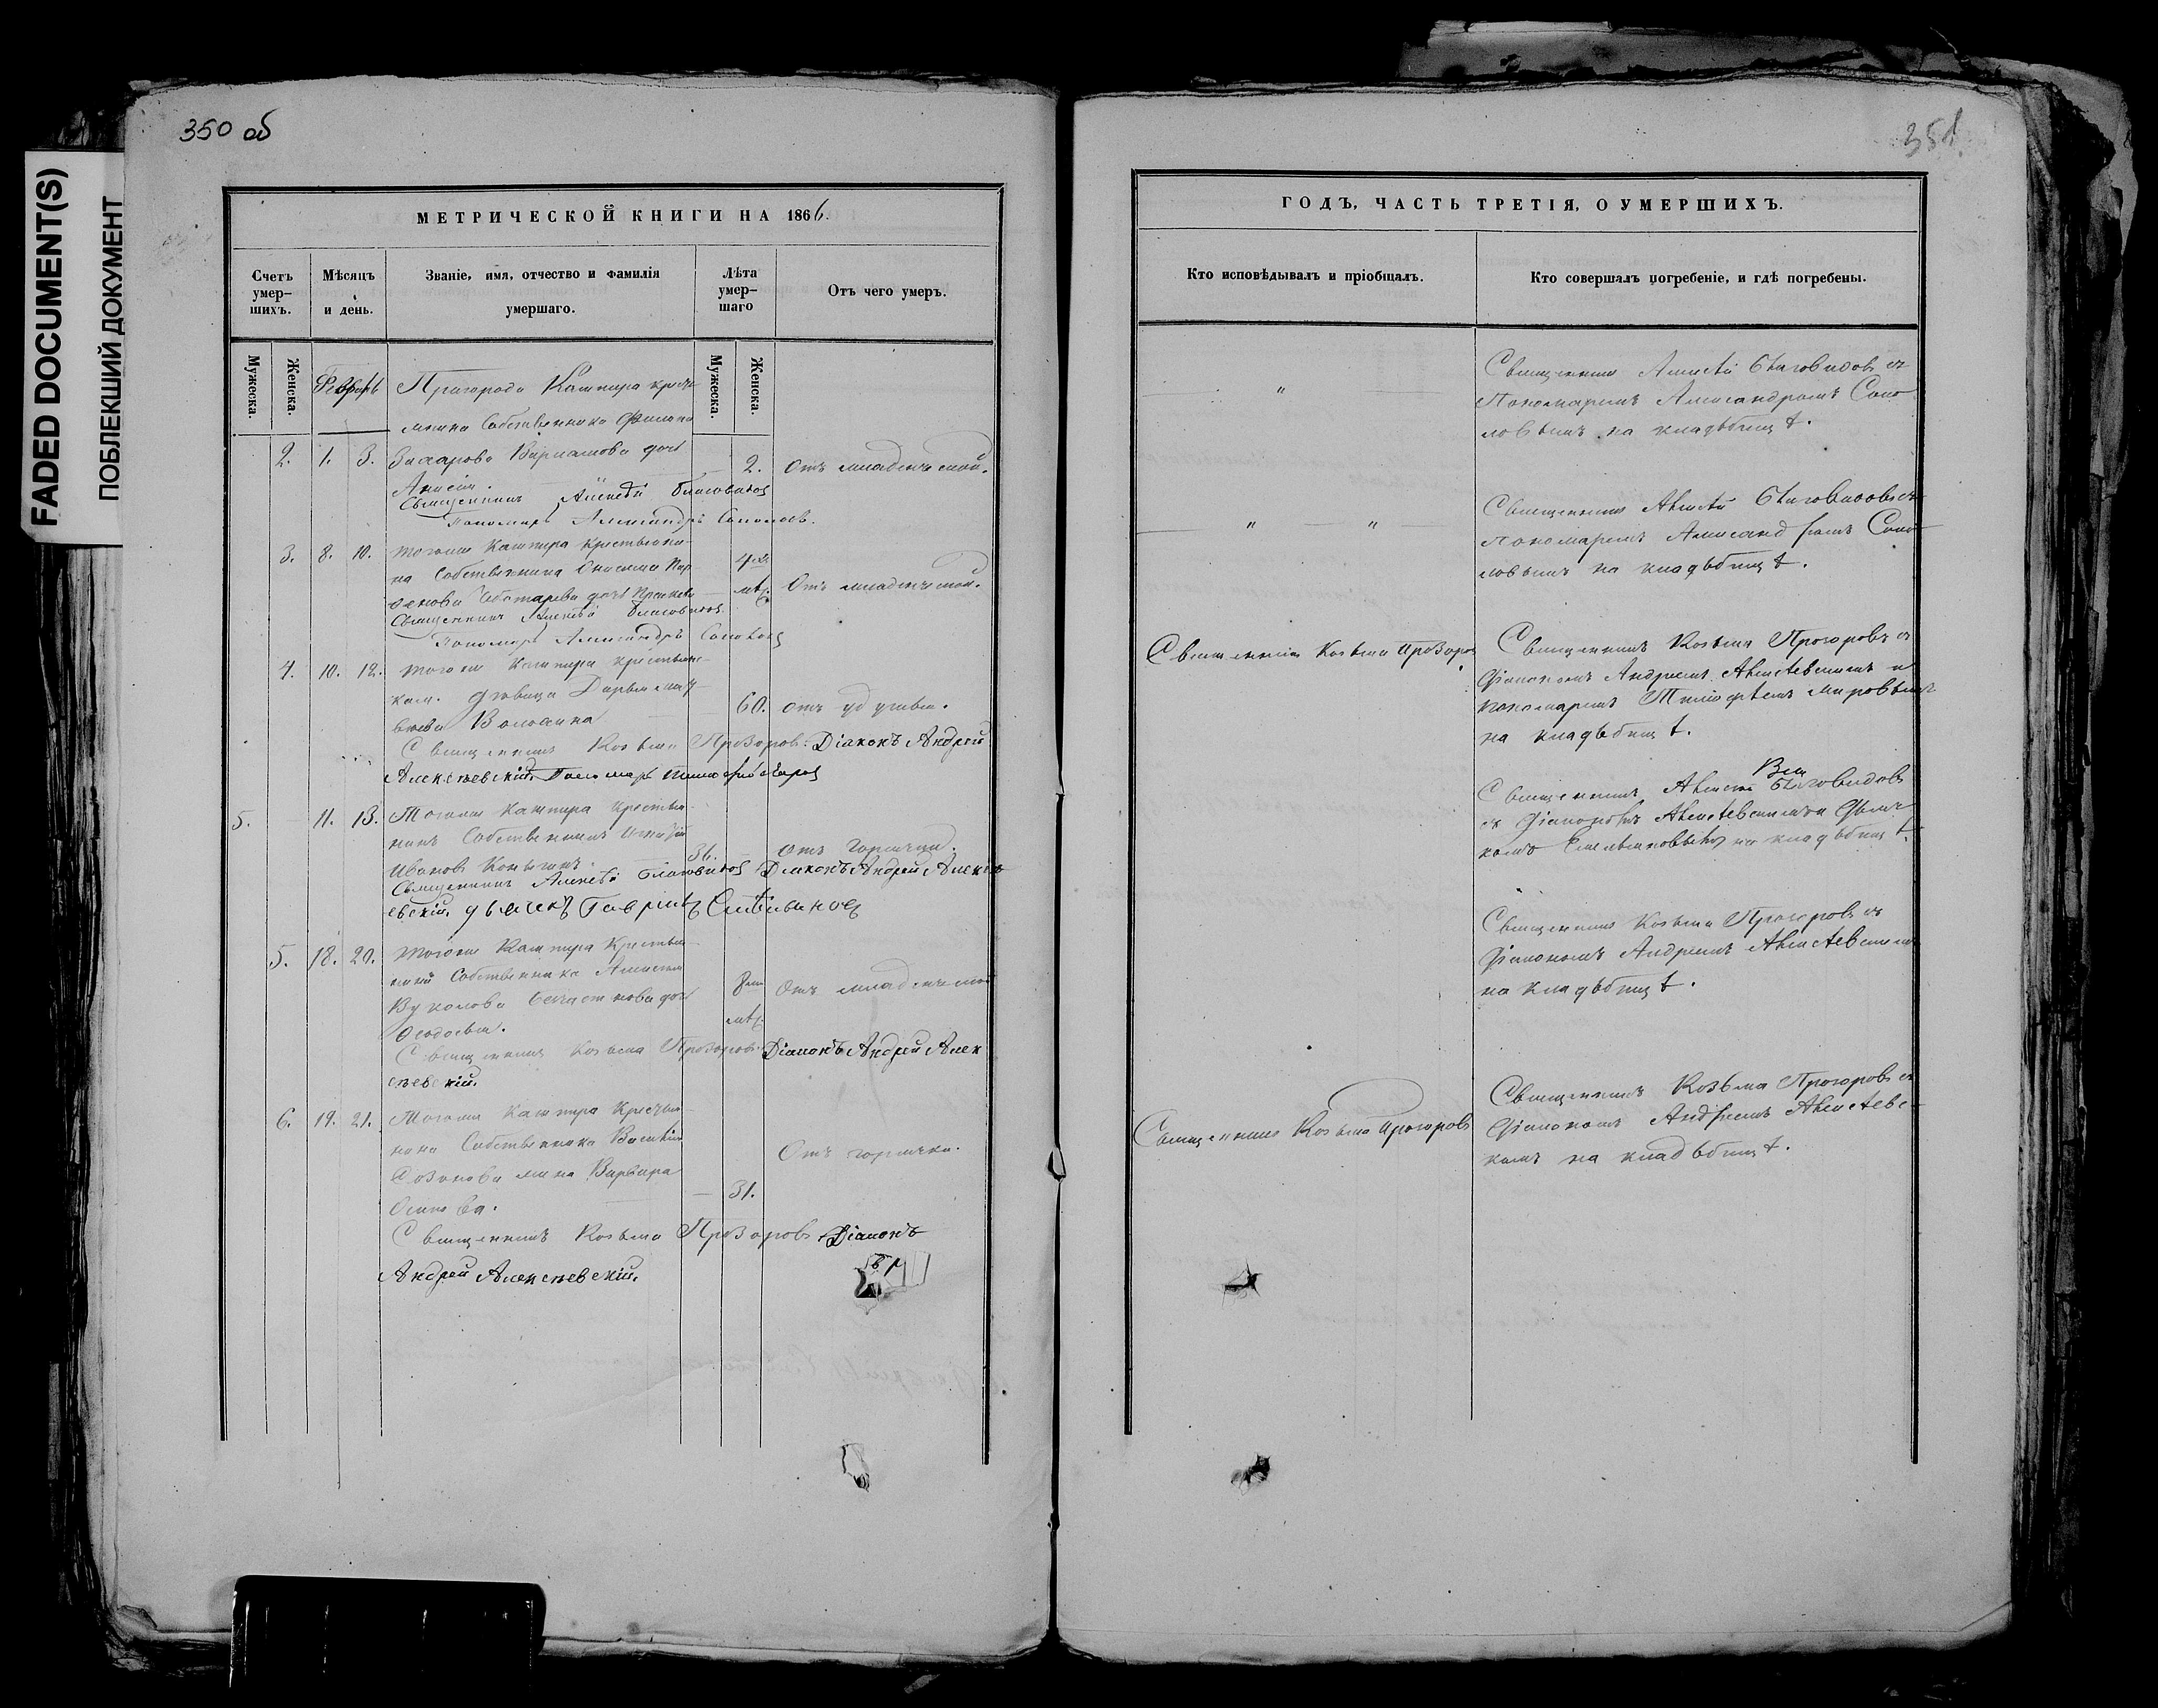 FADED DOCUMENT(S)
ПОБЛЕКШИЙ ДОКУМЕНТ
350 об
МЕТРИЧЕСКОЙ КНИГИ НА 1866.
Счетъ умер-шихъ.
Мѣсяцъ и день.
Званіе, имя, отчество и фамилія умершаго.
Лѣта умер-шаго
Отъ чего умеръ.
Мужеска.
Женска.
Мужеска.
Женска.
Февраль
Пригорода Кашпира кресть
янина Собственника
2. 1. 3. Захарова Варламова дочь 2. Отъ младенческой.
Анисія.
Священникъ Алексѣй Благовидов
Пономарь Александръ Соколов.
3. 8. 10. Тогоже Кашпира Крестьяни-
на Собственника
дочь
мѣс. Отъ младенческой.
Священникъ Алексѣй Благовидов
Пономарь Александръ Соколов
4. 10. 12. Тогоже Кашпира крестьянс-
кая дѣвица Дарья Мат-
вѣева 60. отъ удушья.
Священникъ Козьма Прозоровъ. Діаконъ Андрей
Алексѣевскій. Пономарь
5. 11. 13. Тогоже Кашпира Крестья-
нинъ Собственникъ
Ивановъ 36. Отъ Горячки.
Священникъ Алексѣй Благовидов Діаконъ Андрей Алексѣ
евскій. дьячекъ Гаврилъ
5. 18. 20. Тогоже Кашпира Крестья-
Собственника Алексея
Вуколова дочь 8 мѣс. Отъ младенческой
Ѳеодосья.
Священникъ Козьма Прозоровъ Діаконъ Андрей Алек
сѣевскій.
6. 19. 21. Тогоже Кашпира Крестья-
нина Собственника Василія
жена Варвара Отъ горячки.
Осипова. 31.
Священникъ Козьма Прозоровъ Діаконъ
Андрей Алексѣевскій.
351.
ГОДЪ, ЧАСТЬ ТРЕТІЯ, О УМЕРШИХЪ.
Кто исповѣдывалъ и пріобщалъ.
Кто совершалъ погребеніе, и гдѣ погребены.
"
Священникъ Алексѣй Благовидовъ съ
Пономаремъ Александромъ Соко
ловымъ на кладбищѣ.
" "
Священникъ Алексѣй Благовидовъ съ
Пономаремъ Александромъ Соко
ловымъ на кладбищѣ.
Священникъ Козьма Прозоров
Священникъ Козьма Прозоровъ съ
Діакономъ Андреемъ Алексѣевскимъ и
пономаремъ
на кладбищѣ.
Священникъ Алексей Благовидовъ
съ Діакономъ Алексѣевскимъ и Дьяч
комъ на кладбищѣ.
Священникъ Козьма Прозоровъ съ
Діакономъ Андреемъ Алексѣевским
на кладбищѣ.
Священникъ Козьма Прозоровъ
Священникъ Козьма Прозоровъ съ
Діакономъ Андреемъ Алексѣевс-
кимъ на кладбищѣ.